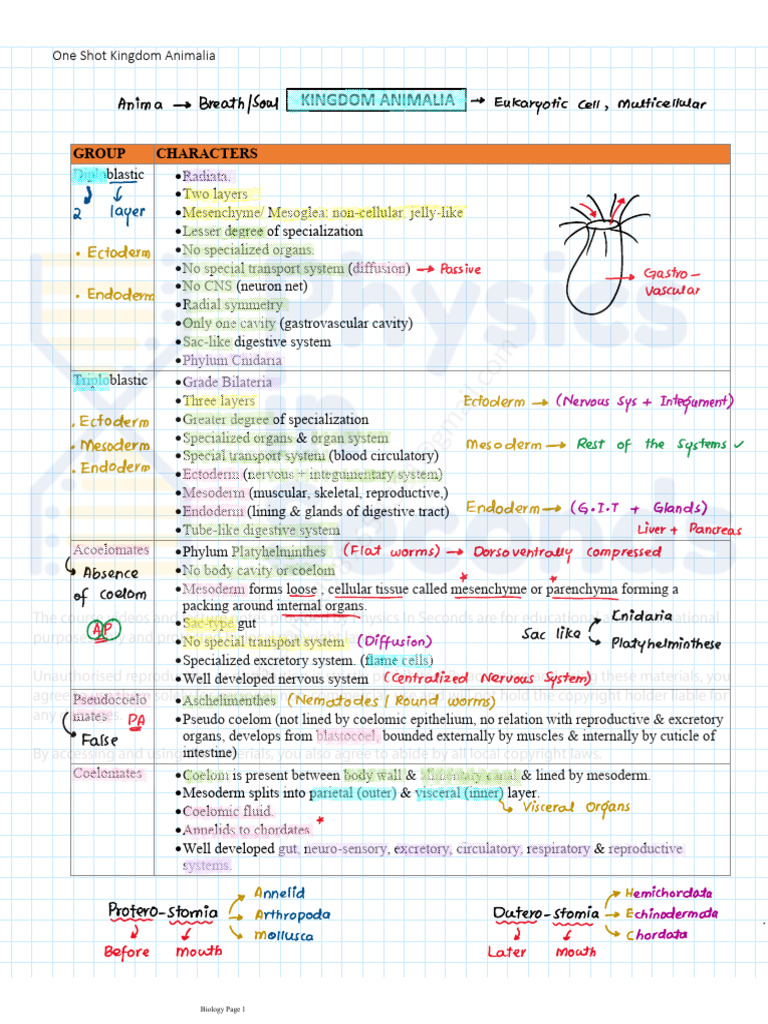 One Shot Kingdom Animalia
Anima → Breath/Soul KINGDOM ANIMALIA → Eukaryotic Cell, Multicellular
GROUP CHARACTERS
Diploblastic
2 layer
• Ectoderm
• Endoderm
•Radiata.
•Two layers
•Mesenchyme/ Mesoglea: non-cellular, jelly-like
•Lesser degree of specialization
•No specialized organs.
•No special transport system (diffusion) → Passive
•No CNS (neuron net)
•Radial symmetry
•Only one cavity (gastrovascular cavity)
•Sac-like digestive system
•Phylum Cnidaria
Gastro-
Vascular
Triploblastic
• Ectoderm
• Mesoderm
• Endoderm
•Grade Bilateria
•Three layers
•Greater degree of specialization
•Specialized organs & organ system
•Special transport system (blood circulatory)
•Ectoderm (nervous + integumentary system)
•Mesoderm (muscular, skeletal, reproductive,)
•Endoderm (lining & glands of digestive tract)
•Tube-like digestive system
Ectoderm → (Nervous Sys + Integument)
Mesoderm → Rest of the Systems ✓
Endoderm → (G.I.T + Glands)
Liver + Pancreas
Acoelomates
Absence
of coelom
AP
•Phylum Platyhelminthes (Flat worms) → Dorsoventrally compressed
•No body cavity or coelom
•Mesoderm forms loose , cellular tissue called mesenchyme or parenchyma forming a
packing around internal organs.
•Sac-type gut
•No special transport system (Diffusion)
•Specialized excretory system. (flame cells)
•Well developed nervous system (Centralized Nervous System)
Sac like
Cnidaria
Platyhelminthese
Pseudocoelo
mates PA
False
•Aschelimenthes (Nematodes / Round worms)
•Pseudo coelom (not lined by coelomic epithelium, no relation with reproductive & excretory
organs, develops from blastocoel, bounded externally by muscles & internally by cuticle of
intestine)
Coelomates
•Coelom is present between body wall & alimentary canal & lined by mesoderm.
•Mesoderm splits into parietal (outer) & visceral (inner) layer.
Visceral Organs
•Coelomic fluid.
•Annelids to chordates
•Well developed gut, neuro-sensory, excretory, circulatory, respiratory & reproductive
systems.
Protero-stomia
Before Mouth
Annelid
Arthropoda
Mollusca
Dutero-stomia
Later Mouth
Hemichordata
Echinodermata
Chordata
Physics
in
Seconds
By accessing and using these materials, you also agree to abide by all local copyright laws.
Biology Page 1